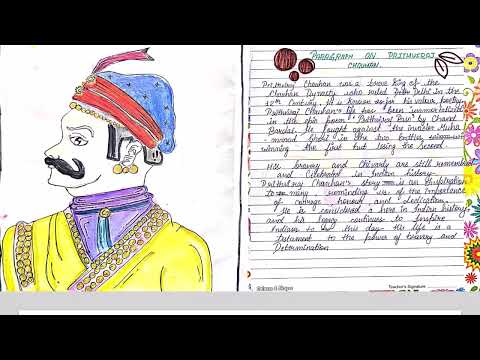 PARAGRAPH ON PRITHVIRAJ
CHAUHAN.
Prithviraj Chauhan was a brave king of the
Chauhan Dynasty who ruled from Delhi in the
12th Century. He is known for his valour, poetry.
Prithviraj Chauhan's life has been immortalized
in the epic poem "Prithviraj Raso" by Chand
Bardai. He fought against the invader Muha
-mmad Ghori in the two battles
winning the first but losing the second.
His bravery and Chivalry are still remembered
and Celebrated in Indian history.
Prithviraj Chauhan's story is an Inspiration
to many reminding us of the importance
of courage, honour and dedication.
He is considered a hero in Indian history
and his legacy continues to Inspire
Indians to this day. His life is a
testament to the power of bravery and
Determination
Teacher's Signature